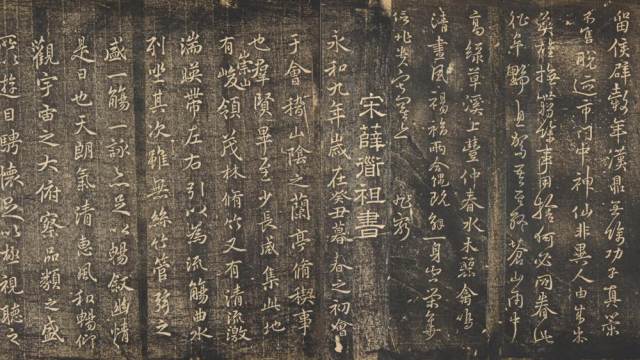 留侯辟穀年漢鼎無餘功子真策
不售脫迹市門中神仙非異人由來本
英雄撫世餘事用捨何必同眷此
蒼山雨中
高綠草溪上豐仲春水木禽鳴
清晝風
宋薛衜祖書
永和九年歲在癸丑暮春之初會
于會稽山陰之蘭亭脩稧事
也羣賢畢至少長咸集此地
有崇山峻領茂林脩竹又有清流激
湍暎帶左右引以為流觴曲水
列坐其次雖無絲竹管弦之
盛一觴一詠亦足以暢敘幽情
是日也天朗氣清惠風和暢仰
觀宇宙之大俯察品類之盛
所以遊目騁懷足以極視聽之